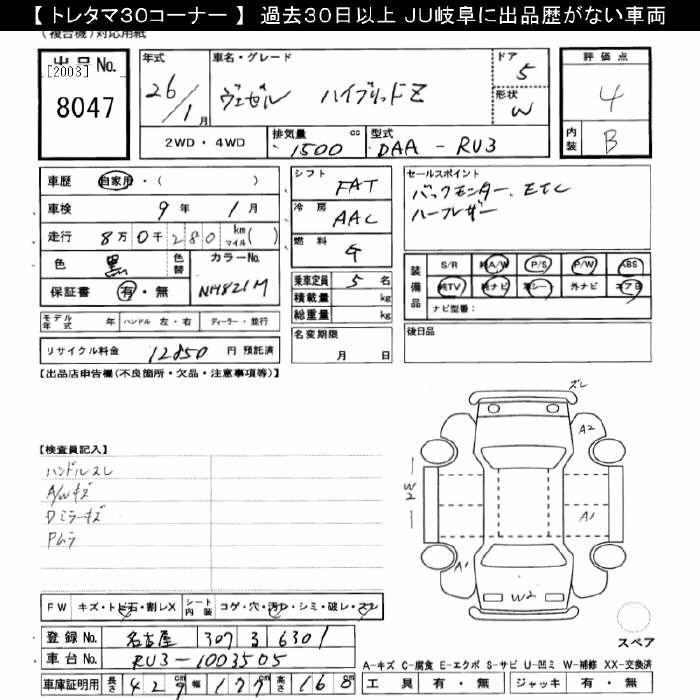 【 トレタマ30コーナー 】 過去30日以上 JU岐阜に出品歴がない車両
(複合機)対応用紙
出品No.
[2003]
8047
年式
26/1月
車名・グレード
ヴェゼル ハイブリッドZ
ドア
5
形状
W
評価点
4
内装
B
2WD・4WD
排気量
1500 cc
型式
DAA - RU3
車歴 自家用・( )
車検 9年 1月
走行 8万0千280 km マイル( )
色 黒 色替 カラーNo.
保証書 有・無 NH821M
シフト FAT
冷房 AAC
燃料 G
乗車定員 5 名
積載量 kg
総重量 kg
セールスポイント
バックモニター、ETC
ハーフレザー
装備品
S/R 純A/W P/S P/W ABS
純TV 純ナビ 革シート 外ナビ エアB
ナビ型量:
モデル年式 年 ハンドル 左・右 ディーラー・並行
リサイクル料金 12850 円 預託済
名変期限
月 日
後日品
【出品店申告欄(不良箇所・欠品・注意事項等)】
【検査員記入】
ハンドルスレ
A/Wキズ
Dミラーキズ
Pムラ
ズレ
A2
W2
A1
A1
W2
スペア
FW キズ・トビ石・割レX シート内装 コゲ・穴・汚レ・シミ・破レ・スレ
登録No. 名古屋 307 る 6301
車台No. RU3-1003505
車庫証明用 長さ 429 幅 177 高さ 160
A-キズ C-腐食 E-エクボ S-サビ U-凹ミ W-補修 XX-交換済
工具 有・無 ジャッキ 有・無